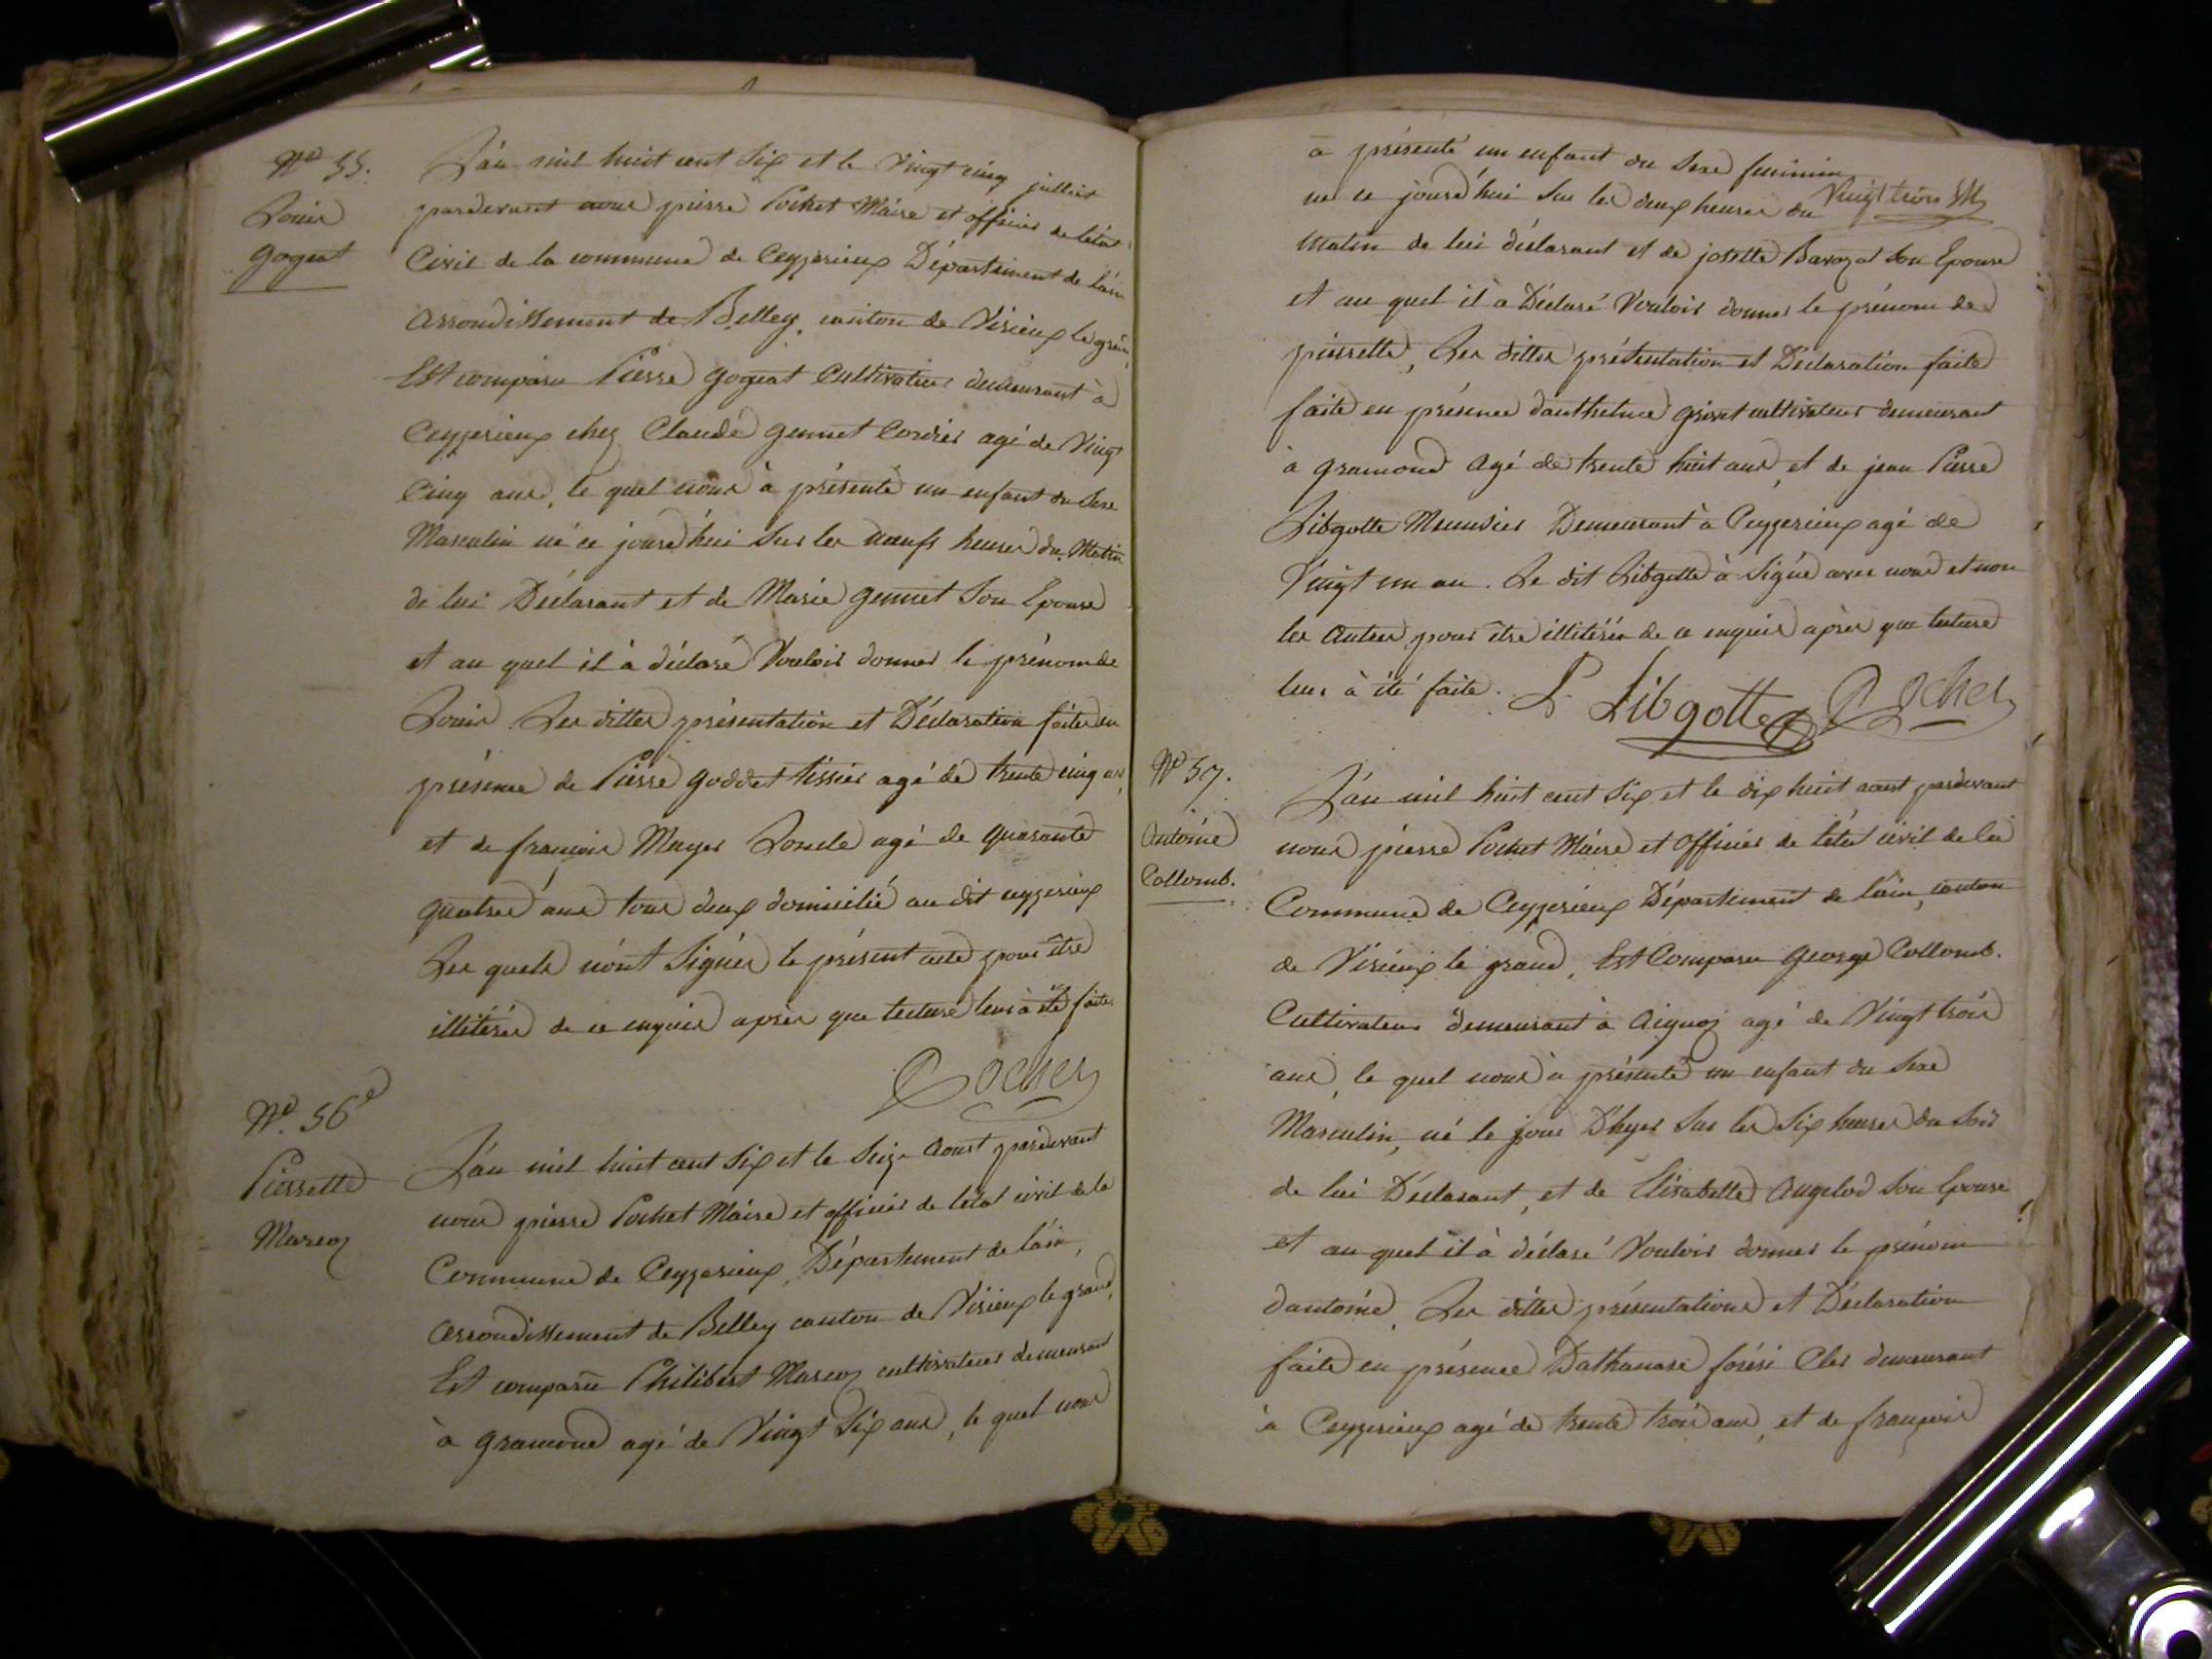 N.o 55.
Louis
gogeat
L'an mil huit cent six et le vingt cinq julliet
pardevant nous pierre Pochet Maire et officier de l'état
Civil de la commune de Ceyzerieux Département de l'ain
arrondissement de Belley, canton de Virieux le grand,
Est comparu Pierre gogeat Cultivateur demeurant à
Ceyzerieux chez Claude gennet Cordier agé de Vingt
Cinq ans, le quel nous à présenté un enfant du sexe
Masculin né ce jourd'hui sur les neufs heures du Matin
de lui Déclarant et de Marie gennet son Epouse
et au quel il à déclaré Vouloir donner le prénom de
Louis Les dittes présentation et Déclaration faites en
présence de Pierre goddet tissier agé de trente cinq ans,
et de françois Mayer agé de quarante
quatre ans tous deux domicilié au dit ceyzerieux
Les quels n'ont signés le présent acte pour être
illitérés de ce enquis après que lecture leur à été faite.
Pochet
N.o 56e
Pierrette
Marcoz
L'an mil huit cent six et le seize aoust pardevant
nous pierre Pochet Maire et officier de l'état civil de la
Commune de Ceyzerieux, Département de l'ain,
arrondissement de Belley canton de Virieux le grand,
Est comparu Philibert Marcoz cultivateur demeurant
à gramond agé de Vingt Six ans, le quel nous
à présenté un enfant du sexe feminin
né ce jourd'hui sur les deux heures du Vingt trois
Matin de lui déclarant et de josette Bavozat son Epouse
et au quel il à Déclaré Vouloir donner le prénom de
pierrette, Les dittes présentation et Déclaration faite
faite en présence d'anthelme cultivateur demeurant
à gramond agé de trente huit ans, et de jean Pierre
Libgotte Meunier Demeurant à Ceyzerieux agé de
Vingt un an. Le dit Libgotte à signé avec nous et non
les autres pour être illitérés de ce enquis après que lecture
leur à été faite. P Libgotte Pochet
N.o 57.
Antoine
Collomb.
L'an mil huit cent six et le dix huit aout pardevant
nous pierre Pochet Maire et officier de l'état civil de la
Commune de Ceyzerieux Département de l'ain, canton
de Virieux le grand, Est Comparu george Collomb.
Cultivateur demeurant à aignoz agé de Vingt trois
ans, le quel nous à présenté un enfant du sexe
Masculin, né le jour D'hyer sur les six heures du soir
de lui Déclarant, et de Elisabette Angelod son Epouse
et au quel il à déclaré Vouloir donner le prénom
d'antoine. Les dittes présentations et Déclaration
faite en présence D'athanase Clerc demeurant
à Ceyzerieux agé de trente trois ans, et de françois